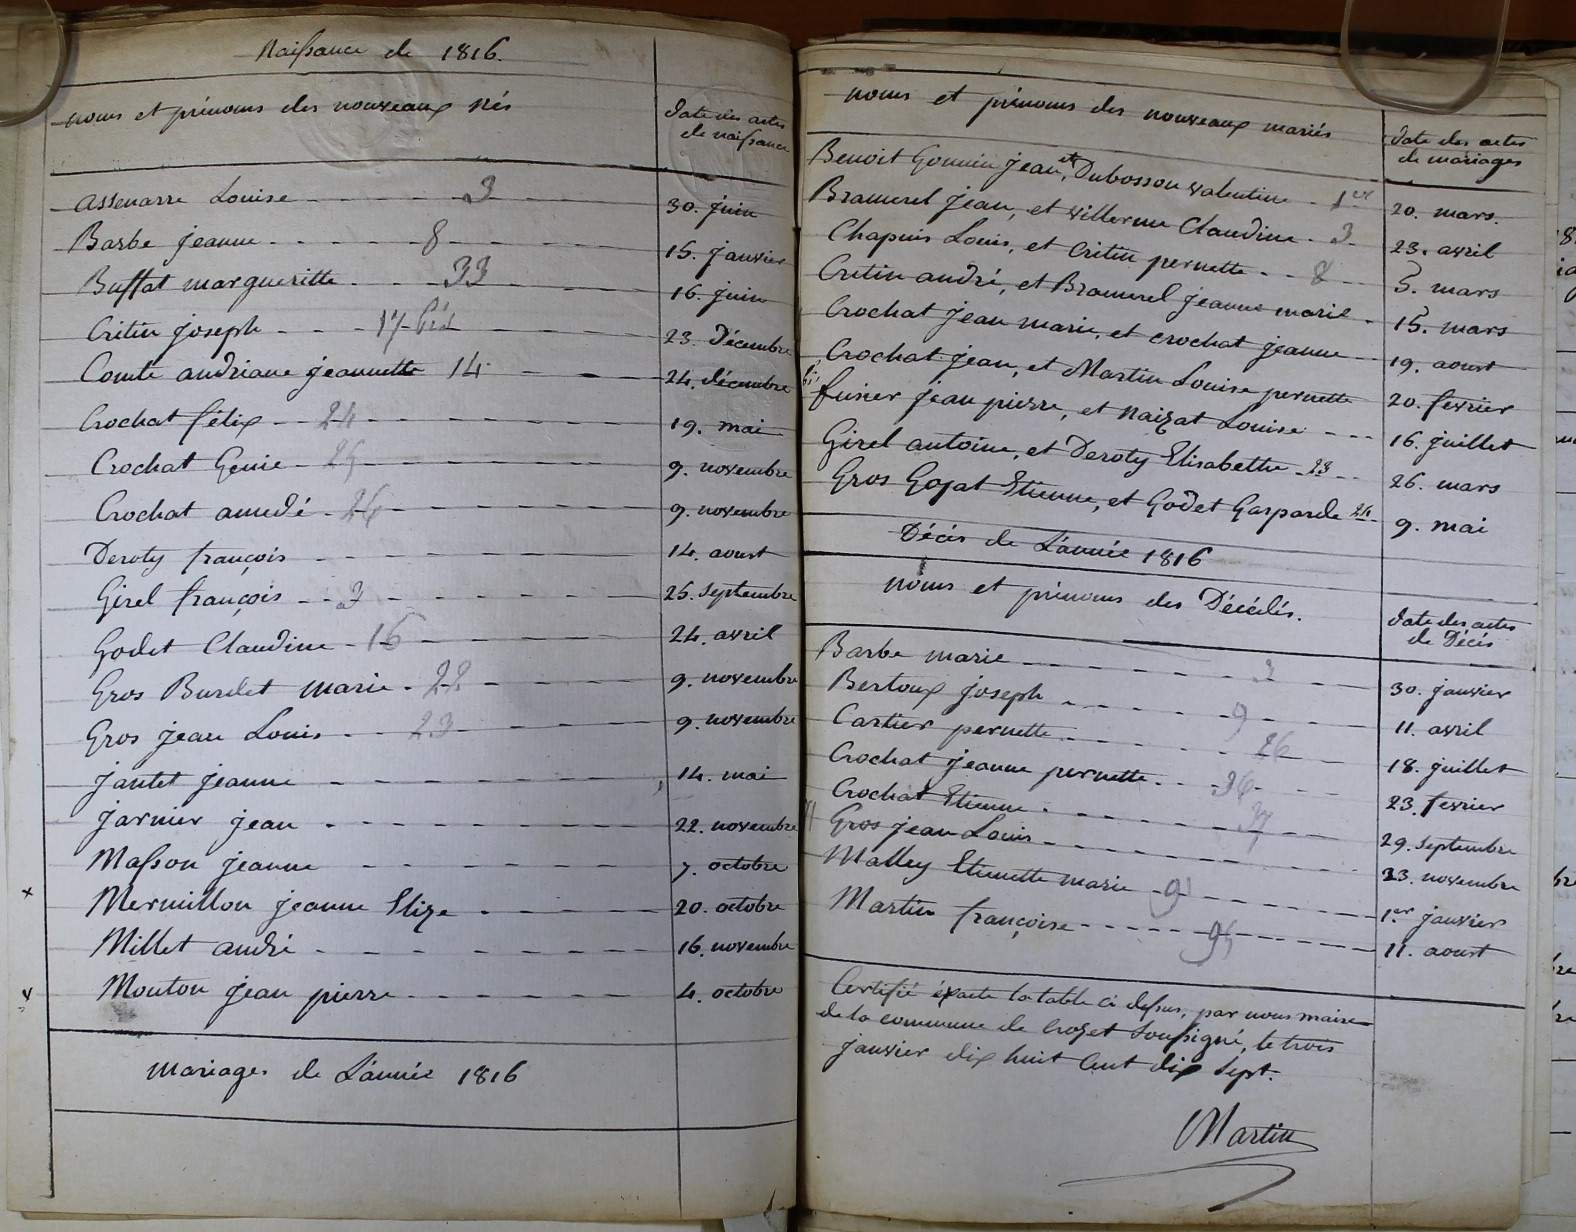 Naissance de 1816.
noms et prénoms des nouveaux nés
date des actes
de naissance
assenarre Louise 3 30. juin
Barbe jeanne 8 15. janvier
Buffat margueritte 33 16. juin
Critin joseph 17 bis 23. Décembre
Comte andriane jeannette 14 24. décembre
Crochat félix 24 19. mai
Crochat Genie 25 9. novembre
Crochat amedé 26 9. novembre
Deroty françois 14. aoust
Girel françois 3 25. septembre
Godet Claudine 15 24. avril
Gros Burdet marie 22 9. novembre
Gros jean Louis 23 9. novembre
jantet jeanne 14. mai
jarnier jean 22. novembre
Masson jeanne 7. octobre
x Mermillon jeanne Elize 20. octobre
Millet andré 16. novembre
x Mouton jean pierre 4. octobre
Mariages de L'année 1816
noms et prénoms des nouveaux mariés
date des actes
de mariages
Benoit Gonnin jean, et Dubosson valentine 1er 20. mars.
Bramerel jean, et villerme Claudine 3 23. avril
Chapuis Louis, et Critin pernette 8 5. mars
Critin andré, et Bramerel jeanne marie 15. mars
Crochat jean marie, et crochat jeanne 19. aoust
Crochat jean, et Martin Louise pernette 20. fevrier
fusier jean pierre, et Naizat Louise 16. juillet
Girel antoine, et Deroty Elisabethe 23 26. mars
Gros Gojat Etienne, et Godet Gasparde 24 9. mai
Décès de L'année 1816
noms et prénoms des Décédés.
date des actes
de Décès
Barbe marie 3 30. janvier
Bertoux joseph 9 11. avril
Cartier pernette 26 18. juillet
Crochat jeanne pernette 36 23. fevrier
Crochat Etienne 37 29. septembre
Gros jean Louis 23. novembre
Malley Etiennette marie 91 1.er janvier
Martin françoise 95 11. aoust
Certifié éxacte la table ci dessus, par nous maire
de la commune de Crozet Soussigné, le trois
janvier dix huit Cent dix sept.
Martin